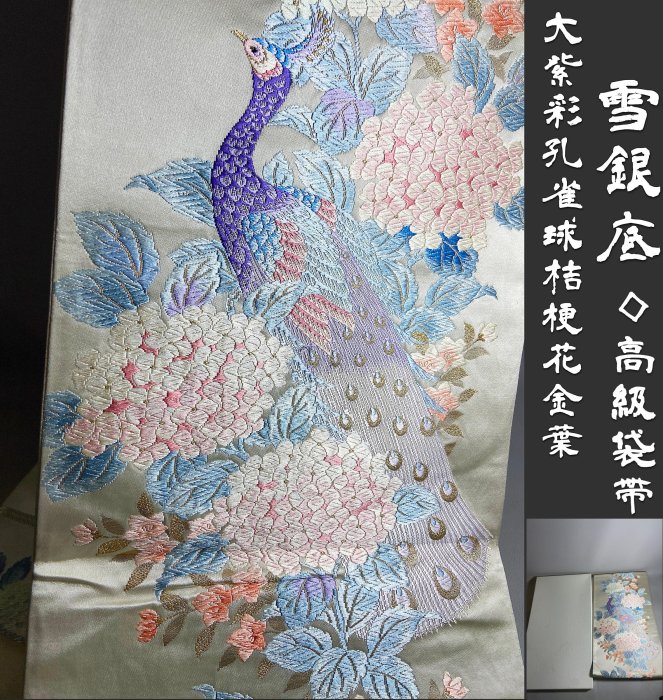 雪銀底◇高級袋帶
大紫彩孔雀球桔梗花金葉